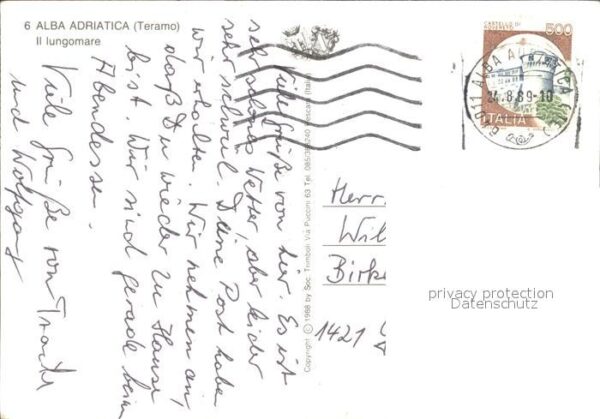 6 ALBA ADRIATICA (Teramo)
Il lungomare
Viele Grüße von hier. Es ist
sehr schönes Wetter, aber leider
sehr schwül. Deine Post haben
wir erhalten. Wir nehmen an,
daß Du wieder zu Hause
bist. Wir sind gerade beim
Abendessen.
Viele Grüße von
und Wolfgang
Copyright © 1988 by Soc. Trimboli Via Puccini 63 Tel. 085/ Pescara (Italy)
CASTELLO DI
ROVERETO
500
ITALIA
24.8.89-10
Herr
Wil
Birke
1421
privacy protection
Datenschutz